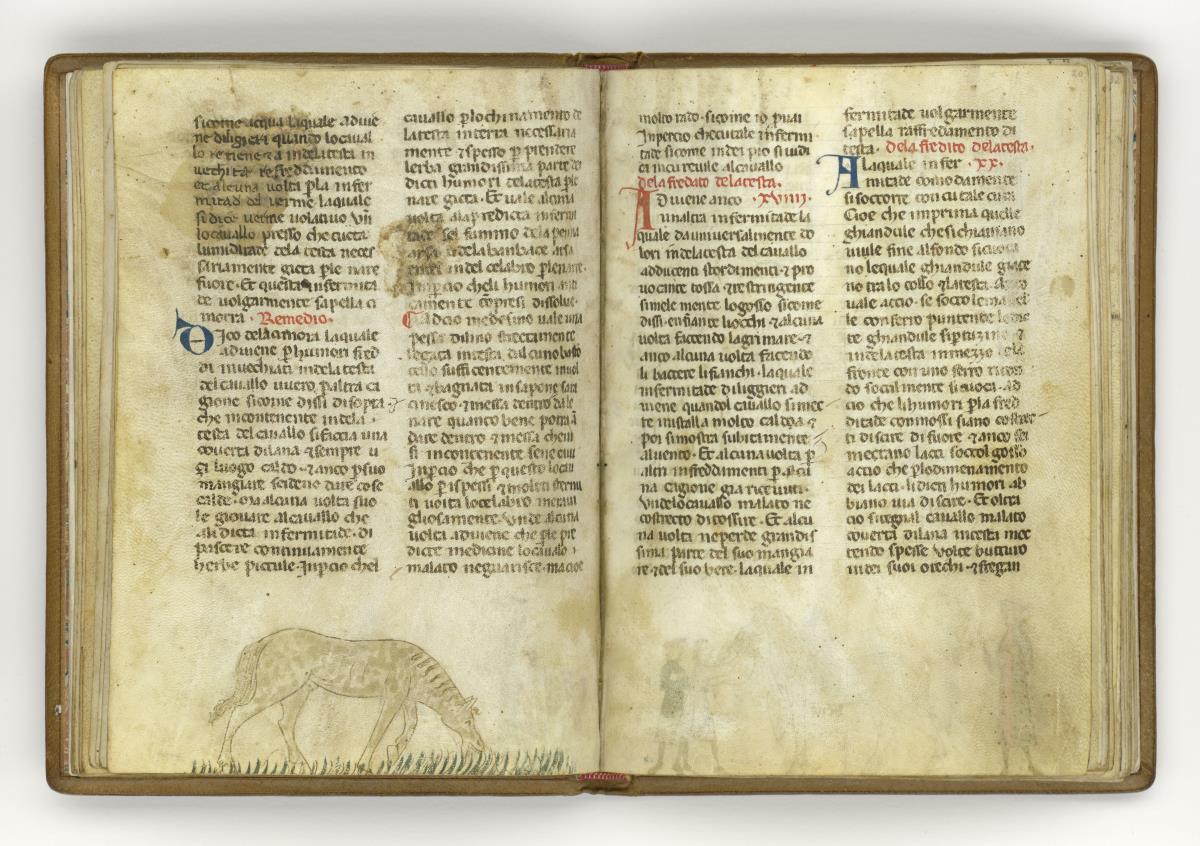 sicome acqua laquale adiue
ne diligieri quando lo caual
lo retiene a indela testa in
uechita refreddamento
et alcuna volta pla infer
mitad del verme laquale
si dice verme volatiuo Vn
lo cauallo presso che tucta
lumiditate dela testa neces
sariamente gicta ple nare
fuore. Et questa infermita
de volgarmente sapella ci
morra . Remedio.
Dico dela cimora laquale
adiuene p humori fred
di inuechiati indela testa
del cauallo uuero p altra ca
gione sicome dissi di sopra
che incontenente indela
testa del cauallo si faccia una
couerta di lana & sempre i
gi luogo caldo. & anco p suo
mangiare se idene due cose
calde. Ma alcuna volta suo
le giouare al cauallo che
ali dicta infermitade. di
pascere continuamente
herbe piccule. Inpcio chel
cauallo p lo chinamento de
la testa in terra necessaria
mente & spesso p prendere
lerba grandissima parte de
dicti humori dela testa ple
nare gicta. Et uale alcuna
volta ala predicta infermi
tade sel fummo dela penna
arsa o dela banbace arsa
entri indel celabro ple nare.
Inpcio cheli humori
camente compresi dissolue.
Ad cio medesimo uale una
pessa di lino strectamente
legata in testa dal cuno basto
cello sufficentemente inuol
ta & bagnati in sapone sara
cinesco. & messa dentro dale
nare quanto bene potra a
dare dentro & messa che ui
si incontenente sene caui
Inpcio che p questo lo cau
allo p i spessi & molti sternu
ti voita lo celabro meraui
gliosamente. Vnde alcuna
volta adiuene che ple pre
dicte medicine lo cauallo
malato ne guarisce. ma cioe
molto rado. sicome io prouai
Inpercio che cutale infermi
tade sicome inde pio si uidi
ci incureuile al cauallo
dela fredato dela testa.
Adviene anco . XVIIII.
unaltra infermitade la
quale da uniuersalmente do
lori indela testa del cauallo
adducenti stordimenti. & pro
uocante tossa & restringente
simele mente lo gosso sicome
dissi. enfiante li occhi. & alcuna
volta faccendo lagrimare &
anco alcuna volta facendo
li bactere li fianchi. la quale
infermitade di liggieri ad
uiene quandol cauallo si mec
te in stalla molto calda. &
poi si mostra subitamente
al uento. Et alcuna volta p
altri infreddamenti p alcu
na cigione gia riceuuti.
Vnde lo cauallo malato ne
costrecto di tossire. Et alcu
na volta ne perde grandis
sima parte del suo mangia
re. & del suo bere. la quale in
fermitade volgarmente
sapella raffredamento di
testa. dela fredito dela testa.
A laquale infer . XX.
mitade comodamente
si soccorre con cutale cura
Cioe che imprima quelle
ghiandule che si chiamano
uiule fine al fondo si cuoca
no lequale ghiandule giace
no tra lo collo & la testa
uale accio. se socto lemascel
le con ferro puntente le dic
te ghiandule si pturino &
indela testa in mezzo dela
fronte con uno ferro riton
do soctilmente si cuoci. ad
cio che li humori pla fred
ditade commossi siano costrec
ti di scire di fuore & anco sei
mectano lacci socto l gosso
accio che p lo dimenamento
dei lacci. li dicti humori ab
biano uia di scire. Et oltra
cio si tegna l cauallo malato
couerta di lana in testa mec
tendo spesse volte buturo
indei suoi orechi. & fregan